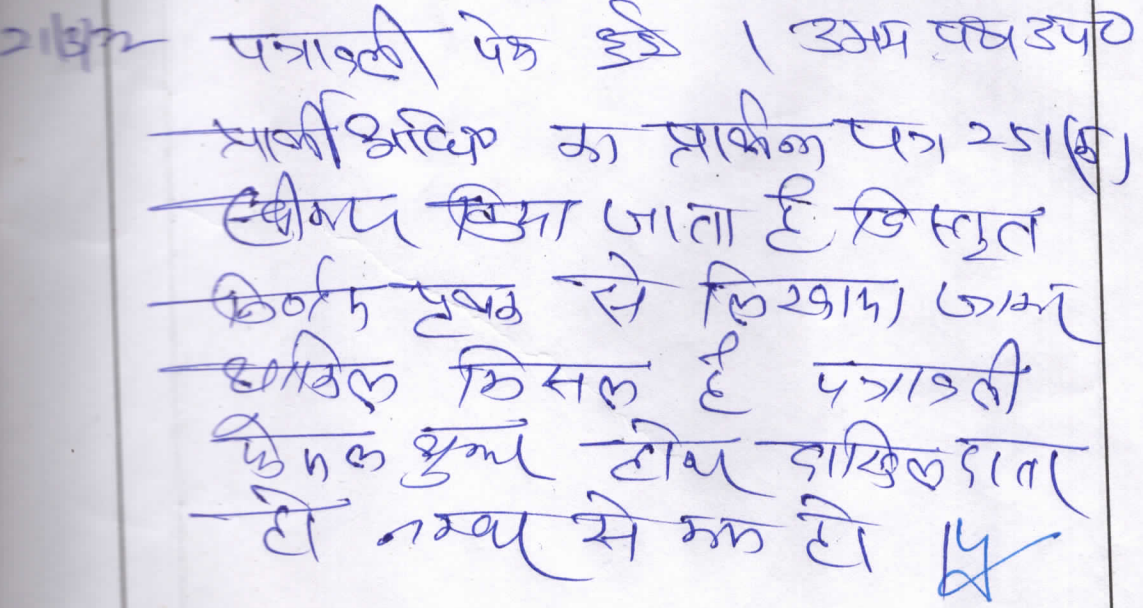 21/3/22 पत्रावली पेश हुई । उभय पक्ष उप०
प्रार्थी अधिक का प्रार्थना पत्र 251(क)
स्वीकार किया जाता है विस्तृत
निर्णय पृथक से लिखाया जाकर
शामिल मिसल है पत्रावली
फैसल शुमार होकर दाखिल दफ्तर
हो नम्बर से कम हो